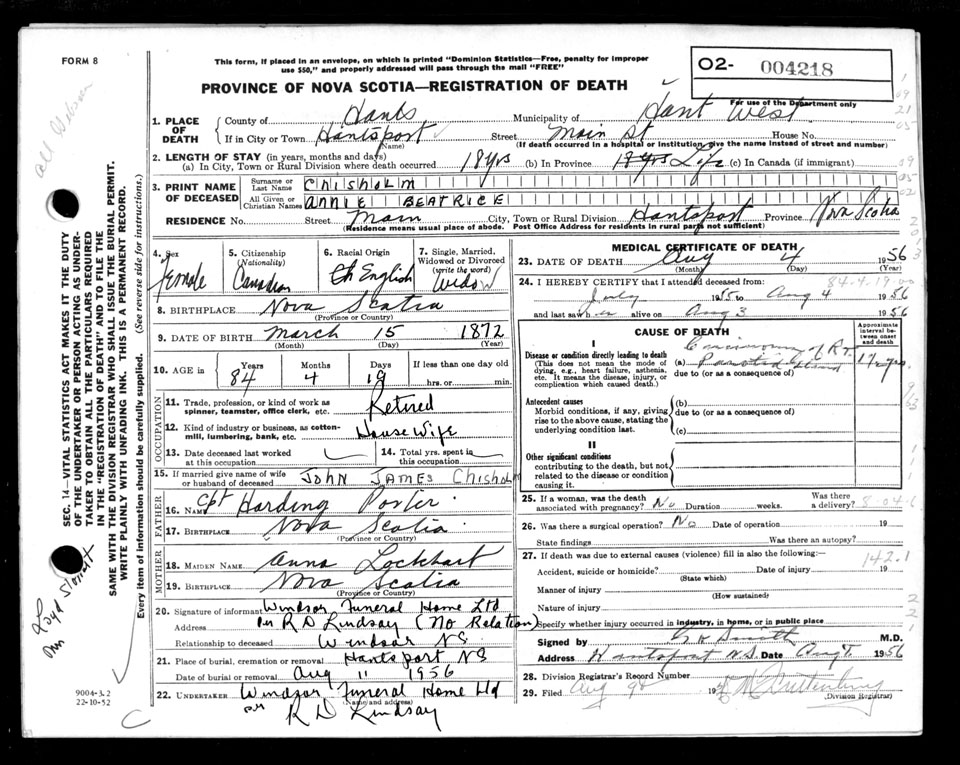 FORM 8
This form, if placed in an envelope, on which is printed "Dominion Statistics—Free, penalty for improper
use $50," and properly addressed will pass through the mail "FREE"
O2- 004218
For use of the Department only
PROVINCE OF NOVA SCOTIA—REGISTRATION OF DEATH
SEC. 14—VITAL STATISTICS ACT MAKES IT THE DUTY
OF THE UNDERTAKER OR PERSON ACTING AS UNDER-
TAKER TO OBTAIN ALL THE PARTICULARS REQUIRED
IN THE "REGISTRATION OF DEATH" AND TO FILE THE
SAME WITH THE DIVISION REGISTRAR WHO SHALL ISSUE THE BURIAL PERMIT.
WRITE PLAINLY WITH UNFADING INK. THIS IS A PERMANENT RECORD.
Every item of information should be carefully supplied. (See reverse side for instructions.)
1. PLACE OF DEATH
County of Hants Municipality of Hant West
If in City or Town Hantsport Street Main St House No.
(Name) (If death occurred in a hospital or institution, give the name instead of street and number)
2. LENGTH OF STAY (in years, months and days)
(a) In City, Town or Rural Division where death occurred 18 yrs (b) In Province 18 yrs Life (c) In Canada (if immigrant)
3. PRINT NAME OF DECEASED
Surname or Last Name Chisholm
All Given or Christian Names ANNIE BEATRICE
RESIDENCE No. Street Main City, Town or Rural Division Hantsport Province Nova Scotia
(Residence means usual place of abode. Post Office Address for residents in rural parts not sufficient)
4. Sex Female
5. Citizenship (Nationality) Canadian
6. Racial Origin English
7. Single, Married, Widowed or Divorced (write the word) Widow
8. BIRTHPLACE Nova Scotia
(Province or Country)
9. DATE OF BIRTH March 15 1872
(Month) (Day) (Year)
10. AGE in Years Months Days If less than one day old
84 4 19 hrs. or min.
OCCUPATION
11. Trade, profession, or kind of work as
spinner, teamster, office clerk, etc. Retired
12. Kind of industry or business, as cotton-
mill, lumbering, bank, etc. House Wife
13. Date deceased last worked
at this occupation
14. Total yrs. spent in
this occupation
15. If married give name of wife
or husband of deceased John James Chisholm
FATHER
16. Name Cpt Harding Porter
17. Birthplace Nova Scotia
(Province or Country)
MOTHER
18. Maiden Name Anna Lockhart
19. Birthplace Nova Scotia
(Province or Country)
20. Signature of informant Windsor Funeral Home Ltd
Address per R D Lindsay (No Relation)
Relationship to deceased Windsor NS
21. Place of burial, cremation or removal Hantsport NS
Date of burial or removal Aug 11 1956
22. UNDERTAKER Windsor Funeral Home Ltd
(Name and address)
per R D Lindsay
9004-3.2
22-10-52
MEDICAL CERTIFICATE OF DEATH
23. DATE OF DEATH Aug 4 1956
(Month) (Day) (Year)
24. I HEREBY CERTIFY that I attended deceased from: 84.4.19
July 1955 to Aug 4 1956
and last saw her alive on Aug 3 1956
CAUSE OF DEATH
Approximate interval between onset and death
I
Disease or condition directly leading to death
(This does not mean the mode of
dying, e.g., heart failure, asthenia,
etc. It means the disease, injury, or
complication which caused death.)
(a) Carcinoma of Rt. Parotid Gland
due to (or as a consequence of)
Antecedent causes
Morbid conditions, if any, giving
rise to the above cause, stating the
underlying condition last.
(b)
due to (or as a consequence of)
(c)
II
Other significant conditions
contributing to the death, but not
related to the disease or condition
causing it.
25. If a woman, was the death
associated with pregnancy? No Duration weeks. Was there a delivery?
26. Was there a surgical operation? No Date of operation 19
State findings Was there an autopsy?
27. If death was due to external causes (violence) fill in also the following: 142.1
Accident, suicide or homicide? Date of injury 19
(State which)
Manner of injury
(How sustained)
Nature of injury
Specify whether injury occurred in industry, in home, or in public place
Signed by Smith M.D.
Address Hantsport N.S. Date Aug 1956
28. Division Registrar's Record Number
29. Filed Aug 9 19
(Division Registrar)